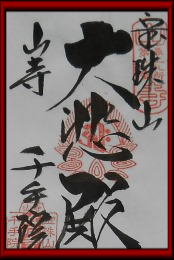 宝珠山
大悲殿
山寺
千手院